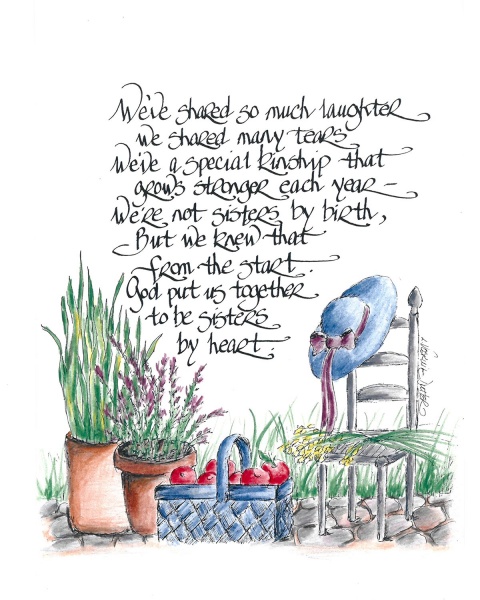 We've shared so much laughter
we shared many tears
We've a special kinship that
grows stronger each year –
We're not sisters by birth,
But we knew that
from the start.
God put us together
to be sisters
by heart.